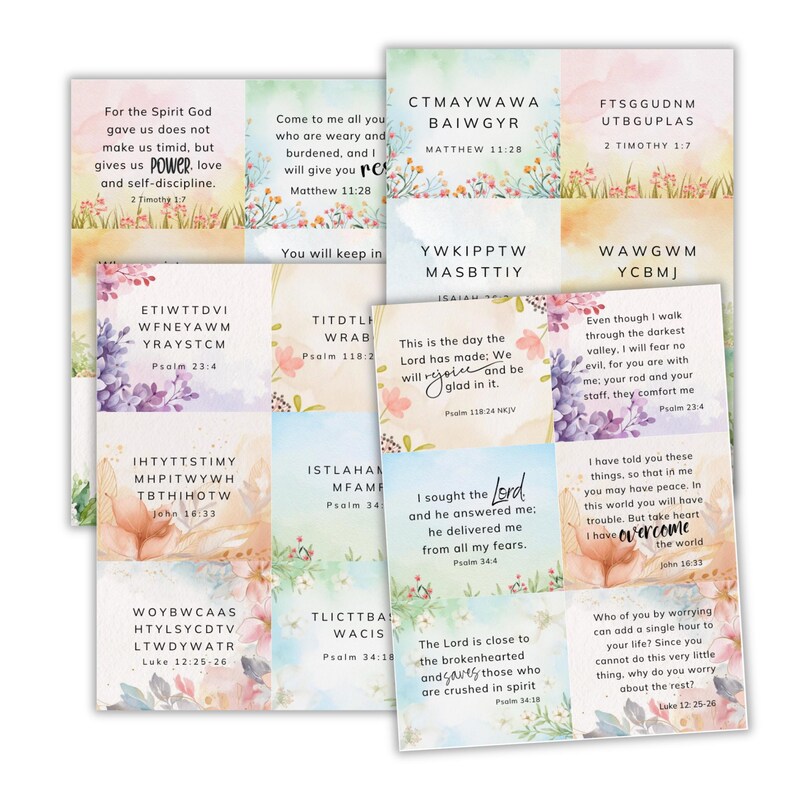 For the Spirit God
gave us does not
make us timid, but
gives us POWER, love
and self-discipline.
2 Timothy 1:7
Come to me all you
who are weary and
burdened, and I
will give you res
Matthew 11:28
You will keep in
CTMAYWAWA
BAIWGYR
MATTHEW 11:28
FTSGGUDNM
UTBGUPLAS
2 TIMOTHY 1:7
YWKIPPTW
MASBTTIY
ISAIAH 26:3
WAWGWM
YCBMJ
ETIWTTDVI
WFNEYAWM
YRAYSTCM
Psalm 23:4
TITDTLH
WRAB
Psalm 118:2
IHTYTTSTIMY
MHPITWYWH
TBTHIHOTW
John 16:33
ISTLAHAM
MFAMF
Psalm 34:
WOYBWCAAS
HTYLSYCDTV
LTWDYWATR
Luke 12:25-26
TLICTTBAS
WACIS
Psalm 34:18
This is the day the
Lord has made; We
will rejoice and be
glad in it.
Psalm 118:24 NKJV
Even though I walk
through the darkest
valley, I will fear no
evil, for you are with
me; your rod and your
staff, they comfort me
Psalm 23:4
I sought the Lord,
and he answered me;
he delivered me
from all my fears.
Psalm 34:4
I have told you these
things, so that in me
you may have peace. In
this world you will have
trouble. But take heart
I have overcome
the world
John 16:33
The Lord is close to
the brokenhearted
and saves those who
are crushed in spirit
Psalm 34:18
Who of you by worrying
can add a single hour to
your life? Since you
cannot do this very little
thing, why do you worry
about the rest?
Luke 12: 25-26